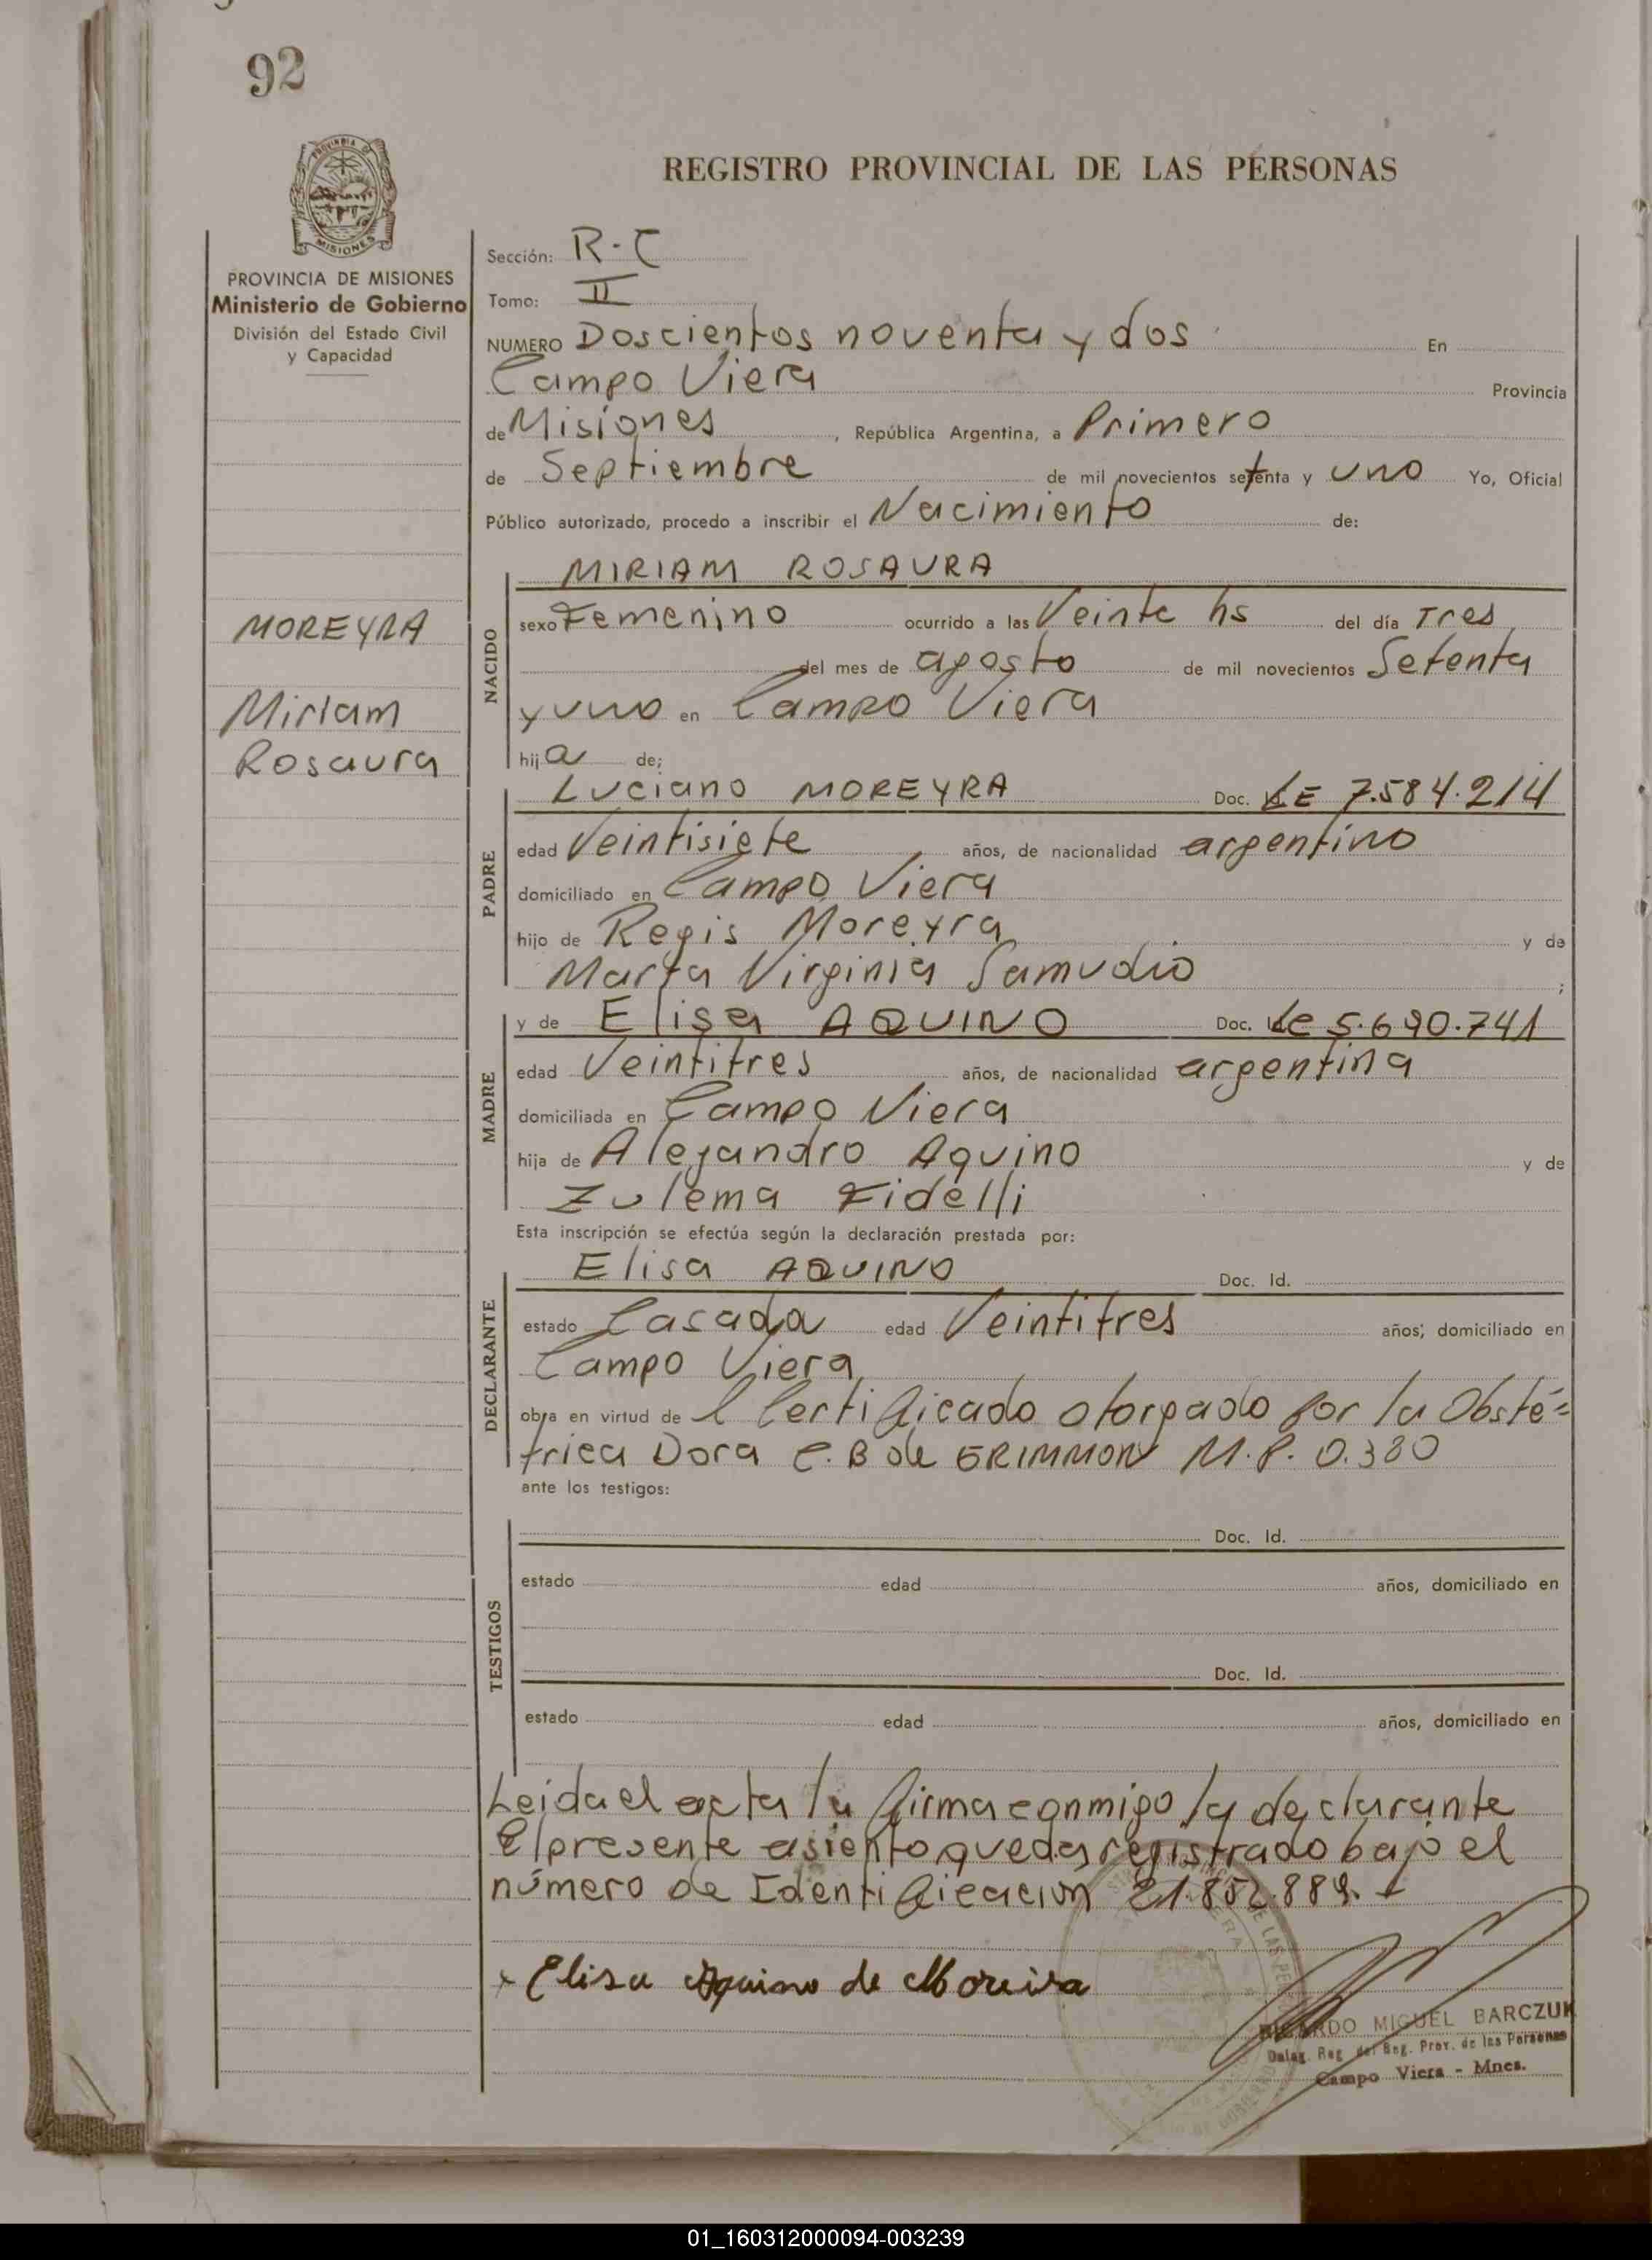 92
PROVINCIA DE MISIONES
Ministerio de Gobierno
División del Estado Civil
y Capacidad
MOREYRA
Miriam
Rosaura
REGISTRO PROVINCIAL DE LAS PERSONAS
Sección: R-C
Tomo: II
NUMERO Doscientos noventa y dos En
Campo Viera Provincia
de Misiones, República Argentina, a Primero
de Septiembre de mil novecientos setenta y uno Yo, Oficial
Público autorizado, procedo a inscribir el Nacimiento de:
NACIDO
MIRIAM ROSAURA
sexo Femenino ocurrido a las Veinte hs del día Tres
del mes de agosto de mil novecientos Setenta
y uno en Campo Viera
hija de;
PADRE
Luciano MOREYRA Doc. LE 7.584.214
edad Veintisiete años, de nacionalidad argentino
domiciliado en Campo Viera
hijo de Regis Moreyra y de
Marta Virginia Samudio ;
MADRE
y de Elisa AQUINO Doc. Lc 5.690.741
edad Veintitres años, de nacionalidad argentina
domiciliada en Campo Viera
hija de Alejandro Aquino y de
Zulema Fidelli
Esta inscripción se efectúa según la declaración prestada por:
DECLARANTE
Elisa AQUINO Doc. Id.
estado Casada edad Veintitres años; domiciliado en
Campo Viera
obra en virtud de l Certificado otorgado por la Obsté=
trica Dora C. B de GRIMMON M.P. 0.380
ante los testigos:
TESTIGOS
Doc. Id.
estado edad años, domiciliado en
Doc. Id.
estado edad años, domiciliado en
Leida el acta la firma conmigo la declarante
El presente asiento queda registrado bajo el
número de Identificacion 21.852.889.-
x Elisa Aquino de Moreira
RICARDO MIGUEL BARCZUK
Deleg. Reg. del Reg. Prov. de las Personas
Campo Viera - Mnes.
01_160312000094-003239